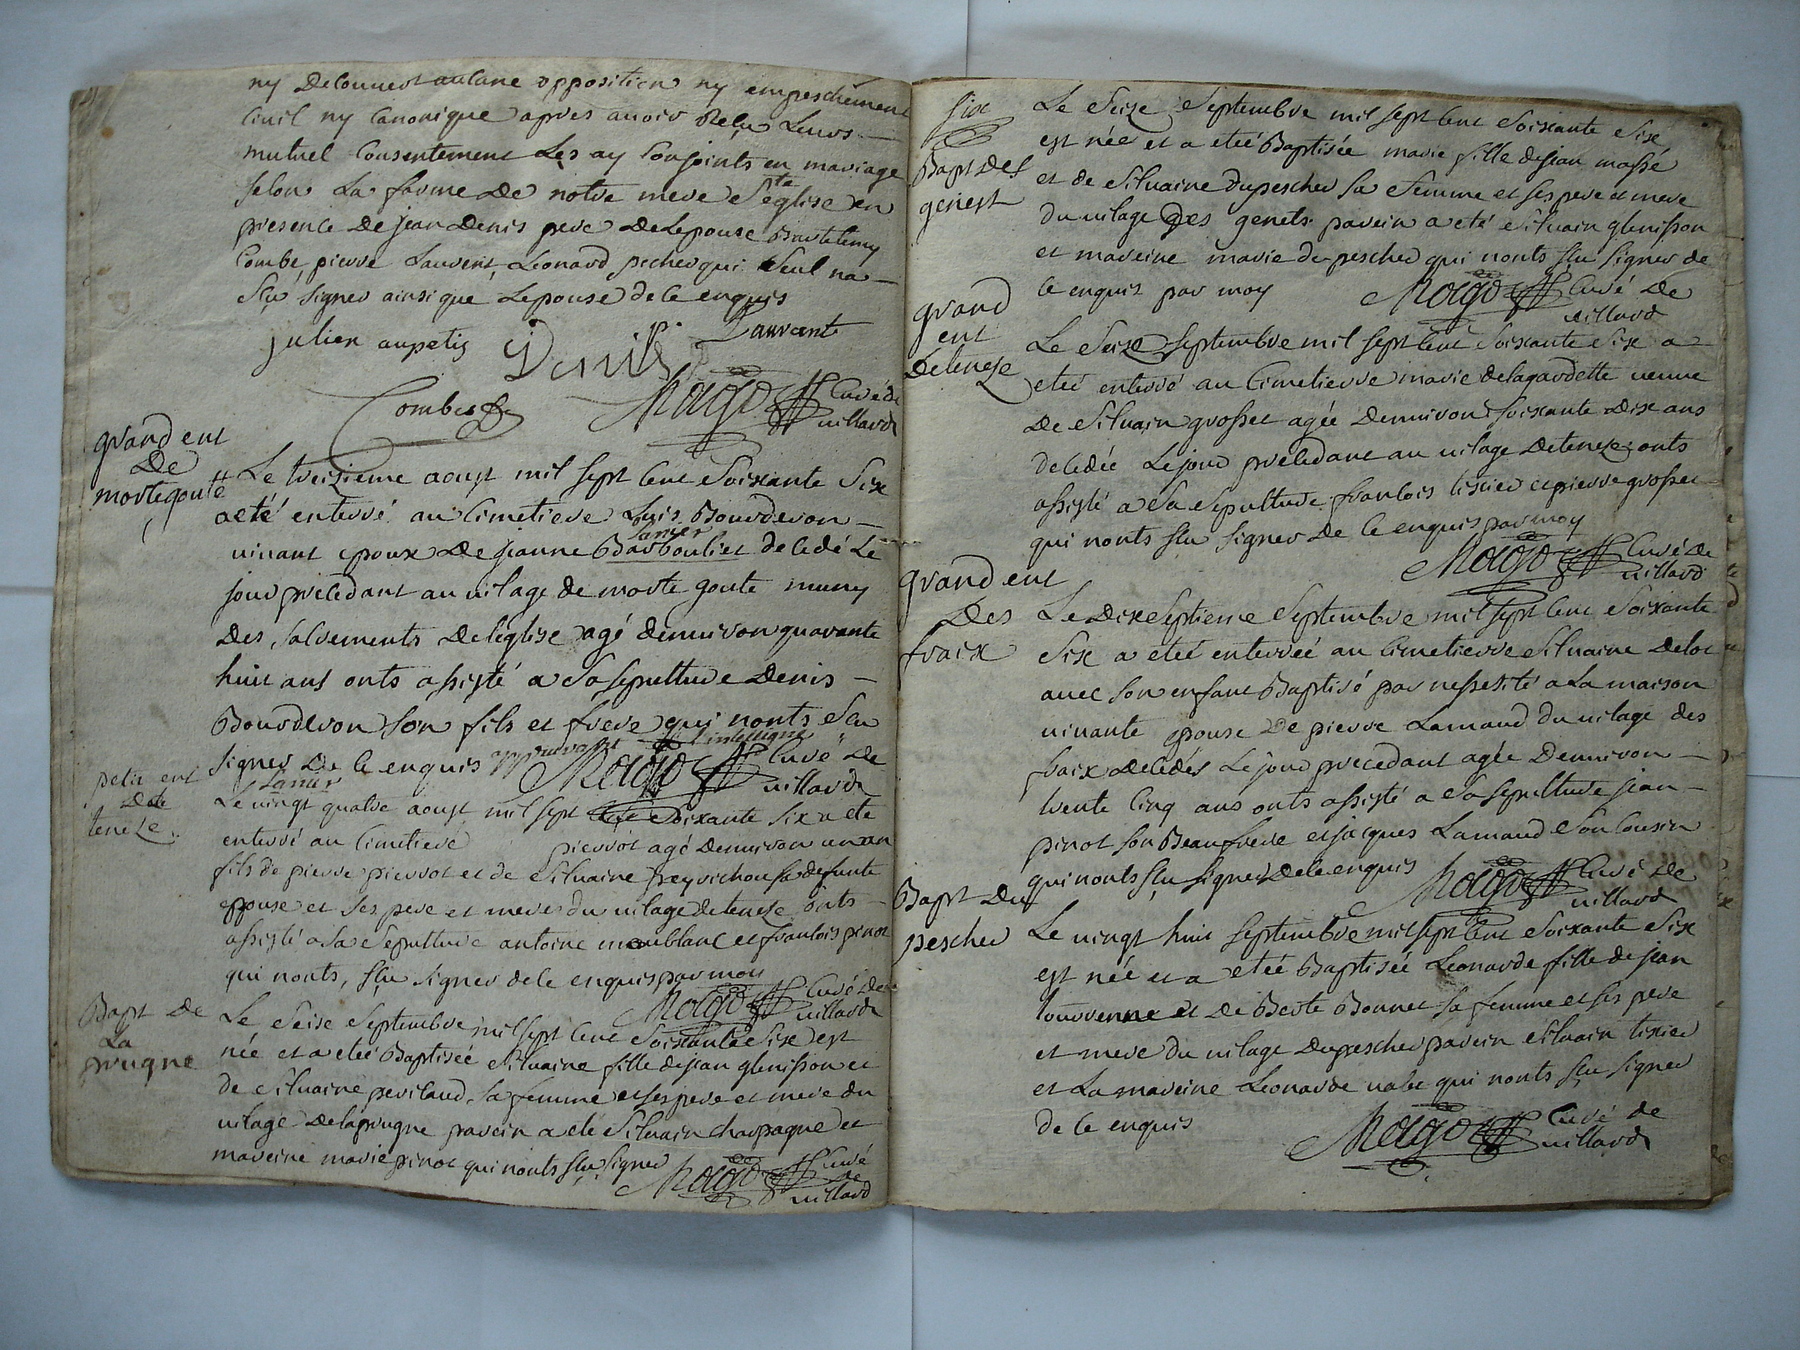 ny decouvert aucune opposition ny empeschement
Civil ny Canonique apres avoir Reçu Leurs
mutuel Consentement Les ay Conjoints en mariage
selon La forme de notre mere Ste eglise en
presence de jean Denis pere de Lepouse Bartelemy
Combe, pierre Laurent, Leonard pecher qui Seul na
sçu signer ainsi que Lepouse de ce enquis
julien aupetis Denis Lauvante
Combes Mago Curé de
villard
grand ent
De
mortegoute
Le treizieme aoust mil sept Cent Soixante Six
a eté enterré au Cimetiere Louis Bourderon
vivant epoux de jeanne Barboulier decedé Le
Lanier
jour precedant au vilage de morte goute muny
des Sacrements de leglise agé denviron quarante
huit ans onts assisté a Sa sepulture Denis
Bourderon son fils et frere qui nonts sçu
signer de ce enquis approuvant Linterligne
Lanier
Mago Curé de
villard
petit ent
de
teneze
Le vingt quatre aoust mil sept Cent Soixante Six a ete
enterré au Cimetiere pierrot agé denviron un an
fils de pierre pierrot et de Silvaine peyrichou sa defunte
epouse et Ses pere et mere du vilage de teneze onts
assisté a Sa Sepulture antoine maublanc et francois pinot
qui nonts, sçu signer de ce enquis par moy
Mago Curé de
villard
Bapt De
La
prugne
Le Seise Septembre mil sept Cent Soixante Six est
née et a eteé Baptisée Silvaine fille de jean glenisson et
de Silvaine perilaud Sa femme et Ses pere et mere du
vilage de laprugne parein a ete Silvain Charpagne et
mareine marie pinot qui nonts sçu signer
Mago Curé
de
villard
Six
Bapt Des
genest
Le Seise Septembre mil sept Cent Soixante Six
est née et a eteé Baptisée marie fille de jean massé
et de Silvaine dupescher Sa femme et Ses pere et mere
du vilage des genets parein a eté Silvain glenisson
et mareine marie dupescher qui nonts sçu signer de
ce enquis par moy Mago Curé de
villard
grand
ent
Deteneze
Le Seize Septembre mil sept Cent Soixante Six a
eteé enterré au Cimetierre marie delagardette veuve
de Silvain grosset agée denviron Soixante Dix ans
decedée Le jour precedant au vilage de teneze onts
assisté a Sa Sepulture francois tixier et pierre grosset
qui nonts sçu signer de ce enquis par moy
Mago Curé de
villard
grand ent
Des
fraix
Le Dixeseptieme Septembre mil sept Cent Soixante
Six a eteé enterrée au Cimetierre Silvaine Delot
avec Son enfant Baptisé par nessesité a La maison
vivante epouse de pierre Lamaud du vilage des
fraix decedés Le jour precedant agée denviron
trente Cinq ans onts assisté a Sa sepulture jean
pinot Son Beaufrere et jacques Lamaud Son Cousin
qui nonts sçu signer de ce enquis Mago Curé de
villard
Bapt Du
pescher
Le vingt huit Septembre mil sept Cent Soixante Six
est née et a eteé Baptisée Leonarde fille de jean
et de Berte Bonnet Sa femme et Ses pere
et mere du vilage du pescher parein Silvain tixier
et La mareine Leonarde qui nonts sçu signer
de ce enquis
Mago Curé de
villard